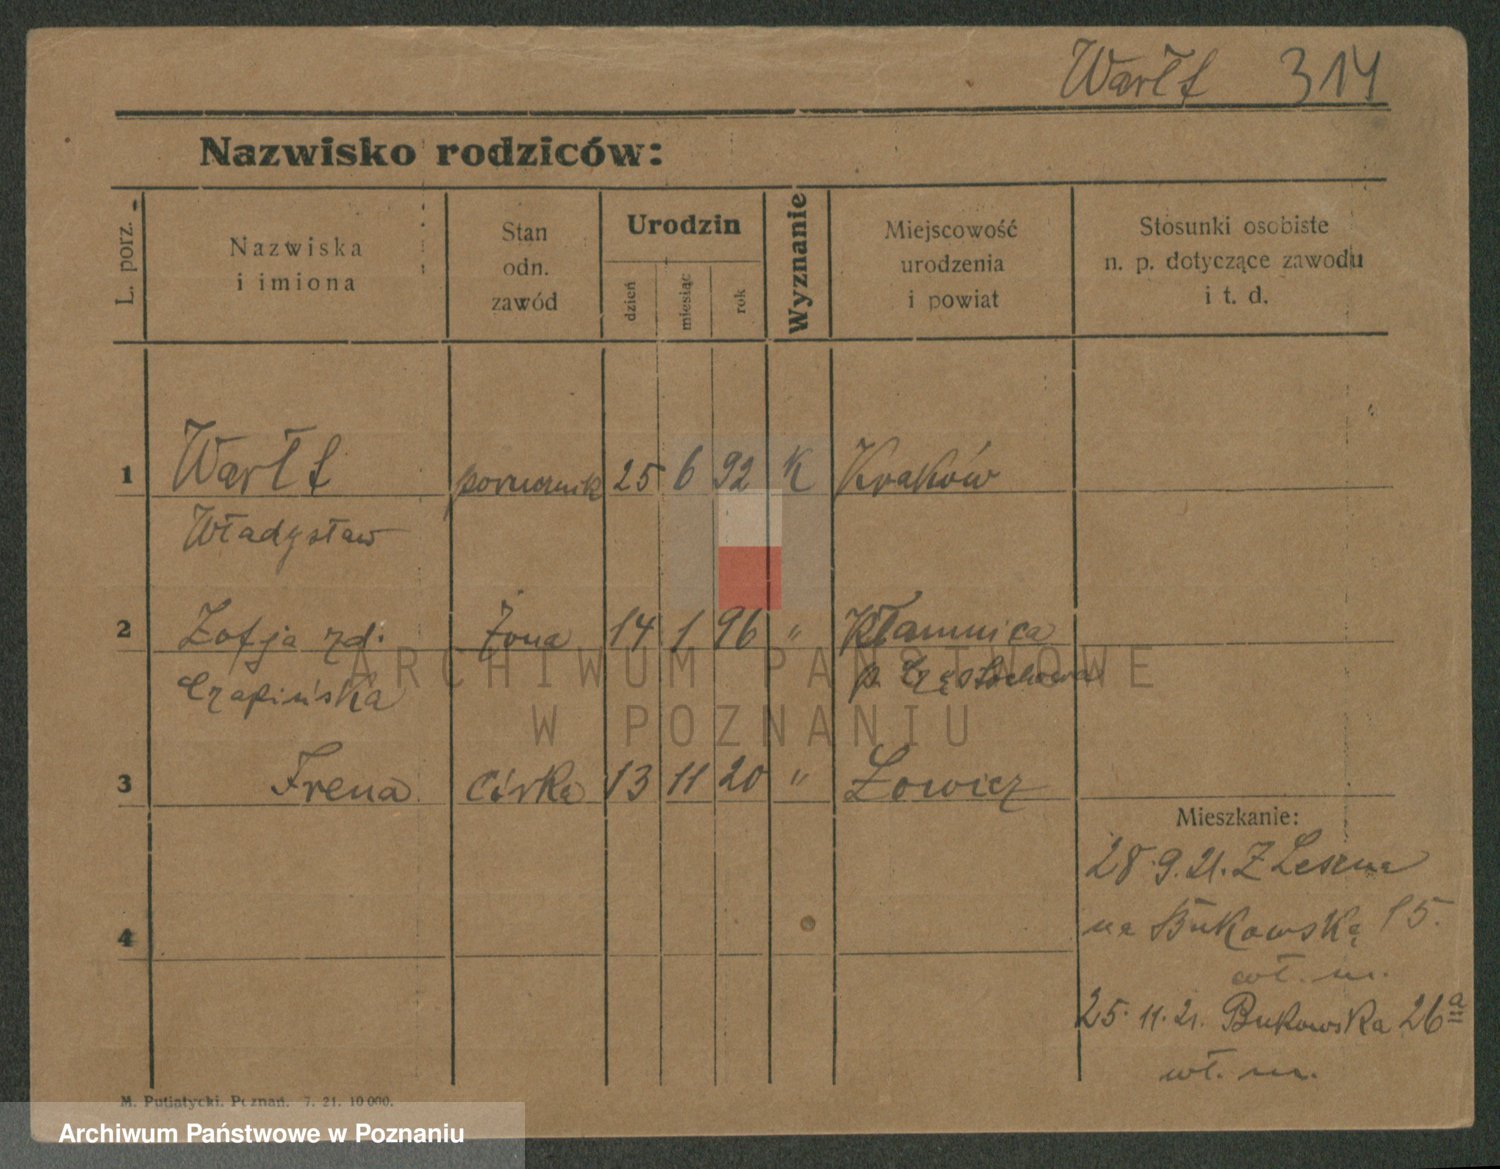 Warłt 314
Nazwisko rodziców:
L. porz.
Nazwiska
i imiona
Stan
odn.
zawód
Urodzin
dzień
miesiąc
rok
Wyznanie
Miejscowość
urodzenia
i powiat
Stosunki osobiste
n. p. dotyczące zawodu
i t. d.
1 Warłt porucznik 25 6 92 K Kraków
Władysław
2 Zofja zd. Żona 14 1 96 " Kłamnica
Czapińska p. Częstochowa
3 Irena Córka 13 11 20 " Łowicz
Mieszkanie:
28.9.21. Z Leszna
na Bukowską 15.
wł. m.
4
25.11.21. Bukowska 26a
wł. m.
M. Putiatycki. Poznań. 7. 21. 10 000.
ARCHIWUM PAŃSTWOWE
W POZNANIU
Archiwum Państwowe w Poznaniu